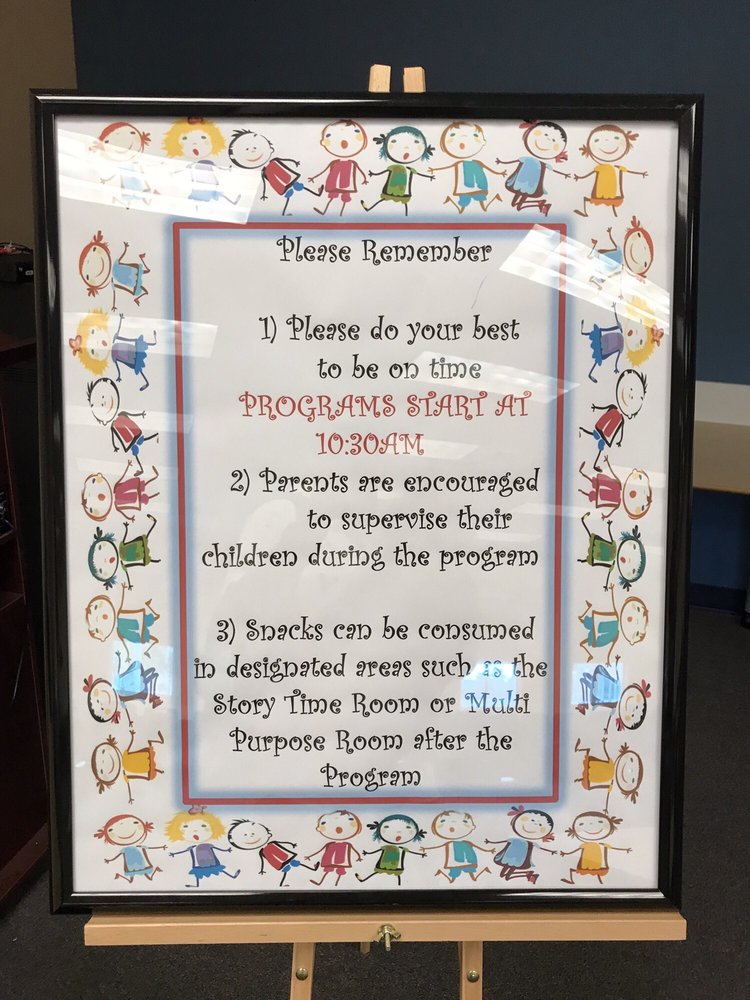 Please Remember
1) Please do your best
to be on time
PROGRAMS START AT
10:30AM
2) Parents are encouraged
to supervise their
children during the program
3) Snacks can be consumed
in designated areas such as the
Story Time Room or Multi
Purpose Room after the
Program